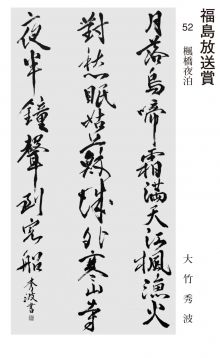 福島放送賞
52 楓橋夜泊
大竹秀波
月落烏啼霜滿天江楓漁火
對愁眠姑蘇城外寒山寺
夜半鐘聲到客船 秀波書